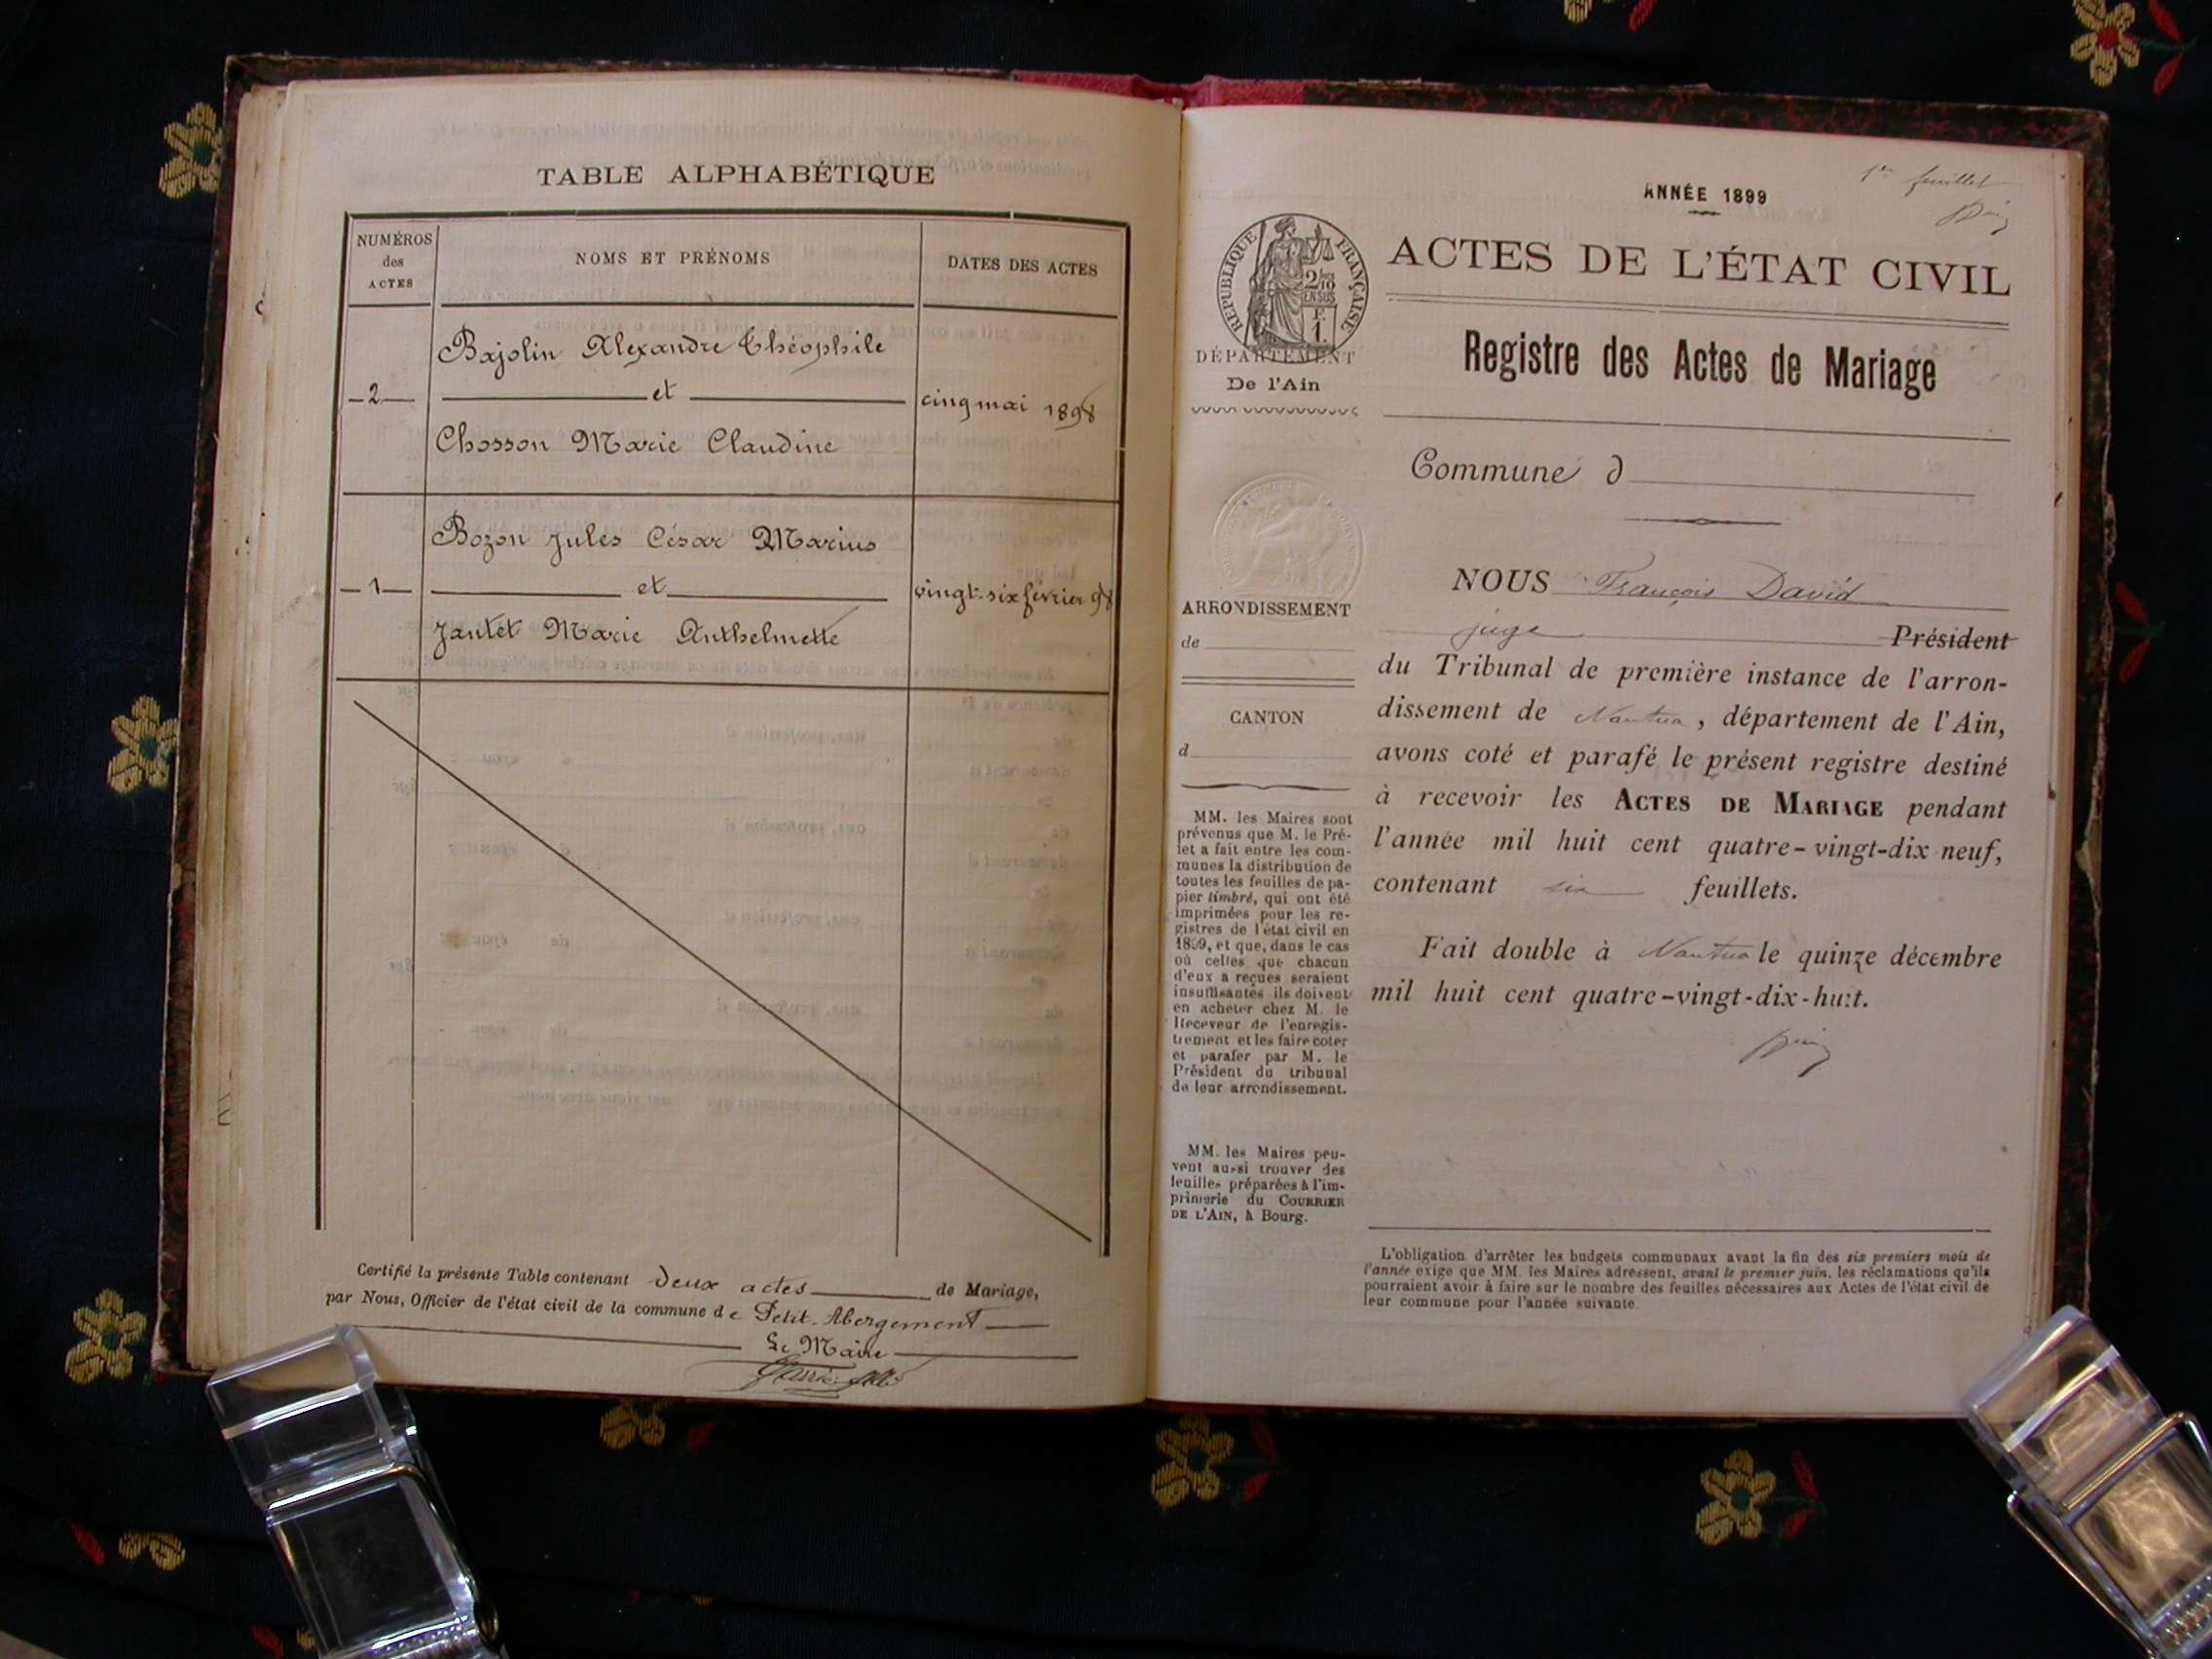 TABLE ALPHABÉTIQUE
NUMÉROS
des
ACTES
NOMS ET PRÉNOMS
DATES DES ACTES
Bajolin Alexandre Théophile
—2— et cinq mai 1898
Chosson Marie Claudine
Bozon Jules César Marius
—1— et vingt-six février 98
Jantet Marie Anthelmette
Certifié la présente Table contenant deux actes de Mariage,
par Nous, Officier de l'état civil de la commune de Petit-Abergement
Le Maire
1er feuillet
ANNÉE 1899
RÉPUBLIQUE FRANÇAISE
2/10
EN SUS
F.
1.
DÉPARTEMENT
De l'Ain
ACTES DE L'ÉTAT CIVIL
Registre des Actes de Mariage
Commune d
ARRONDISSEMENT
de
CANTON
d
MM. les Maires sont
prévenus que M. le Pré-
fet a fait entre les com-
munes la distribution de
toutes les feuilles de pa-
pier timbré, qui ont été
imprimées pour les re-
gistres de l'état civil en
1899, et que, dans le cas
où celles que chacun
d'eux a reçues seraient
insuffisantes ils doivent
en acheter chez M. le
Receveur de l'enregis-
trement et les faire coter
et parafer par M. le
Président du tribunal
de leur arrondissement.
MM. les Maires peu-
vent aussi trouver des
feuilles préparées à l'im-
primerie du COURRIER
DE L'AIN, à Bourg.
NOUS François David
juge Président
du Tribunal de première instance de l'arron-
dissement de Nantua, département de l'Ain,
avons coté et parafé le présent registre destiné
à recevoir les ACTES DE MARIAGE pendant
l'année mil huit cent quatre-vingt-dix neuf,
contenant six feuillets.
Fait double à Nantua le quinze décembre
mil huit cent quatre-vingt-dix-huit.
L'obligation d'arrêter les budgets communaux avant la fin des six premiers mois de
l'année exige que MM. les Maires adressent, avant le premier juin, les réclamations qu'ils
pourraient avoir à faire sur le nombre des feuilles nécessaires aux Actes de l'état civil de
leur commune pour l'année suivante.